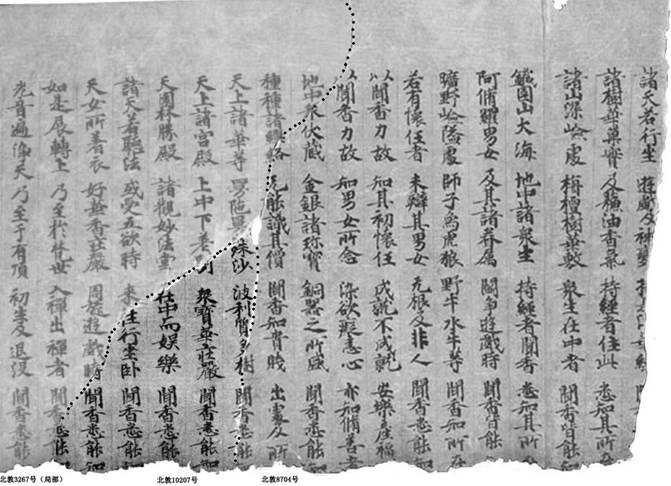 諸天若行坐 遊戲及神變
諸樹華菓實 及穌油香氣 持經者住此 悉知其所在
諸山深嶮處 栴檀樹華敷 衆生在中者 聞香皆能知
鐵圍山大海 地中諸衆生 持經者聞香 悉知其所在
阿脩羅男女 及其諸眷屬 鬪諍遊戲時 聞香皆能
曠野嶮隘處 師子鳥虎狼 野牛水牛等 聞香知所在
若有懷任者 未辯其男女 无根及非人 聞香悉能知
以聞香力故 知其初懷任 成就不成就 安樂產福
以聞香力故 知男女所念 染欲癡恚心 亦知脩善者
地中衆伏藏 金銀諸珍寶 銅器之所盛 聞香悉能知
種種諸瓔珞 无能識其價 聞香知貴賤 出處及所
天上諸華等 曼陀曼殊沙 波利質多樹 聞香悉能知
天上諸宮殿 上中下差別 衆寶華莊嚴 聞香悉能知
天園林勝殿 諸觀妙法堂 在中而娛樂 聞香悉能知
諸天若聽法 或受五欲時 來往行坐卧 聞香悉能知
天女所著衣 好華香莊嚴 周旋遊戲時 聞香悉能知
如是展轉上 乃至於梵世 入禪出禪者 聞香悉能
光音遍淨天 乃至于有頂 初生及退沒 聞香悉能知
北敦3267号（局部）
北敦10207号
北敦8704号